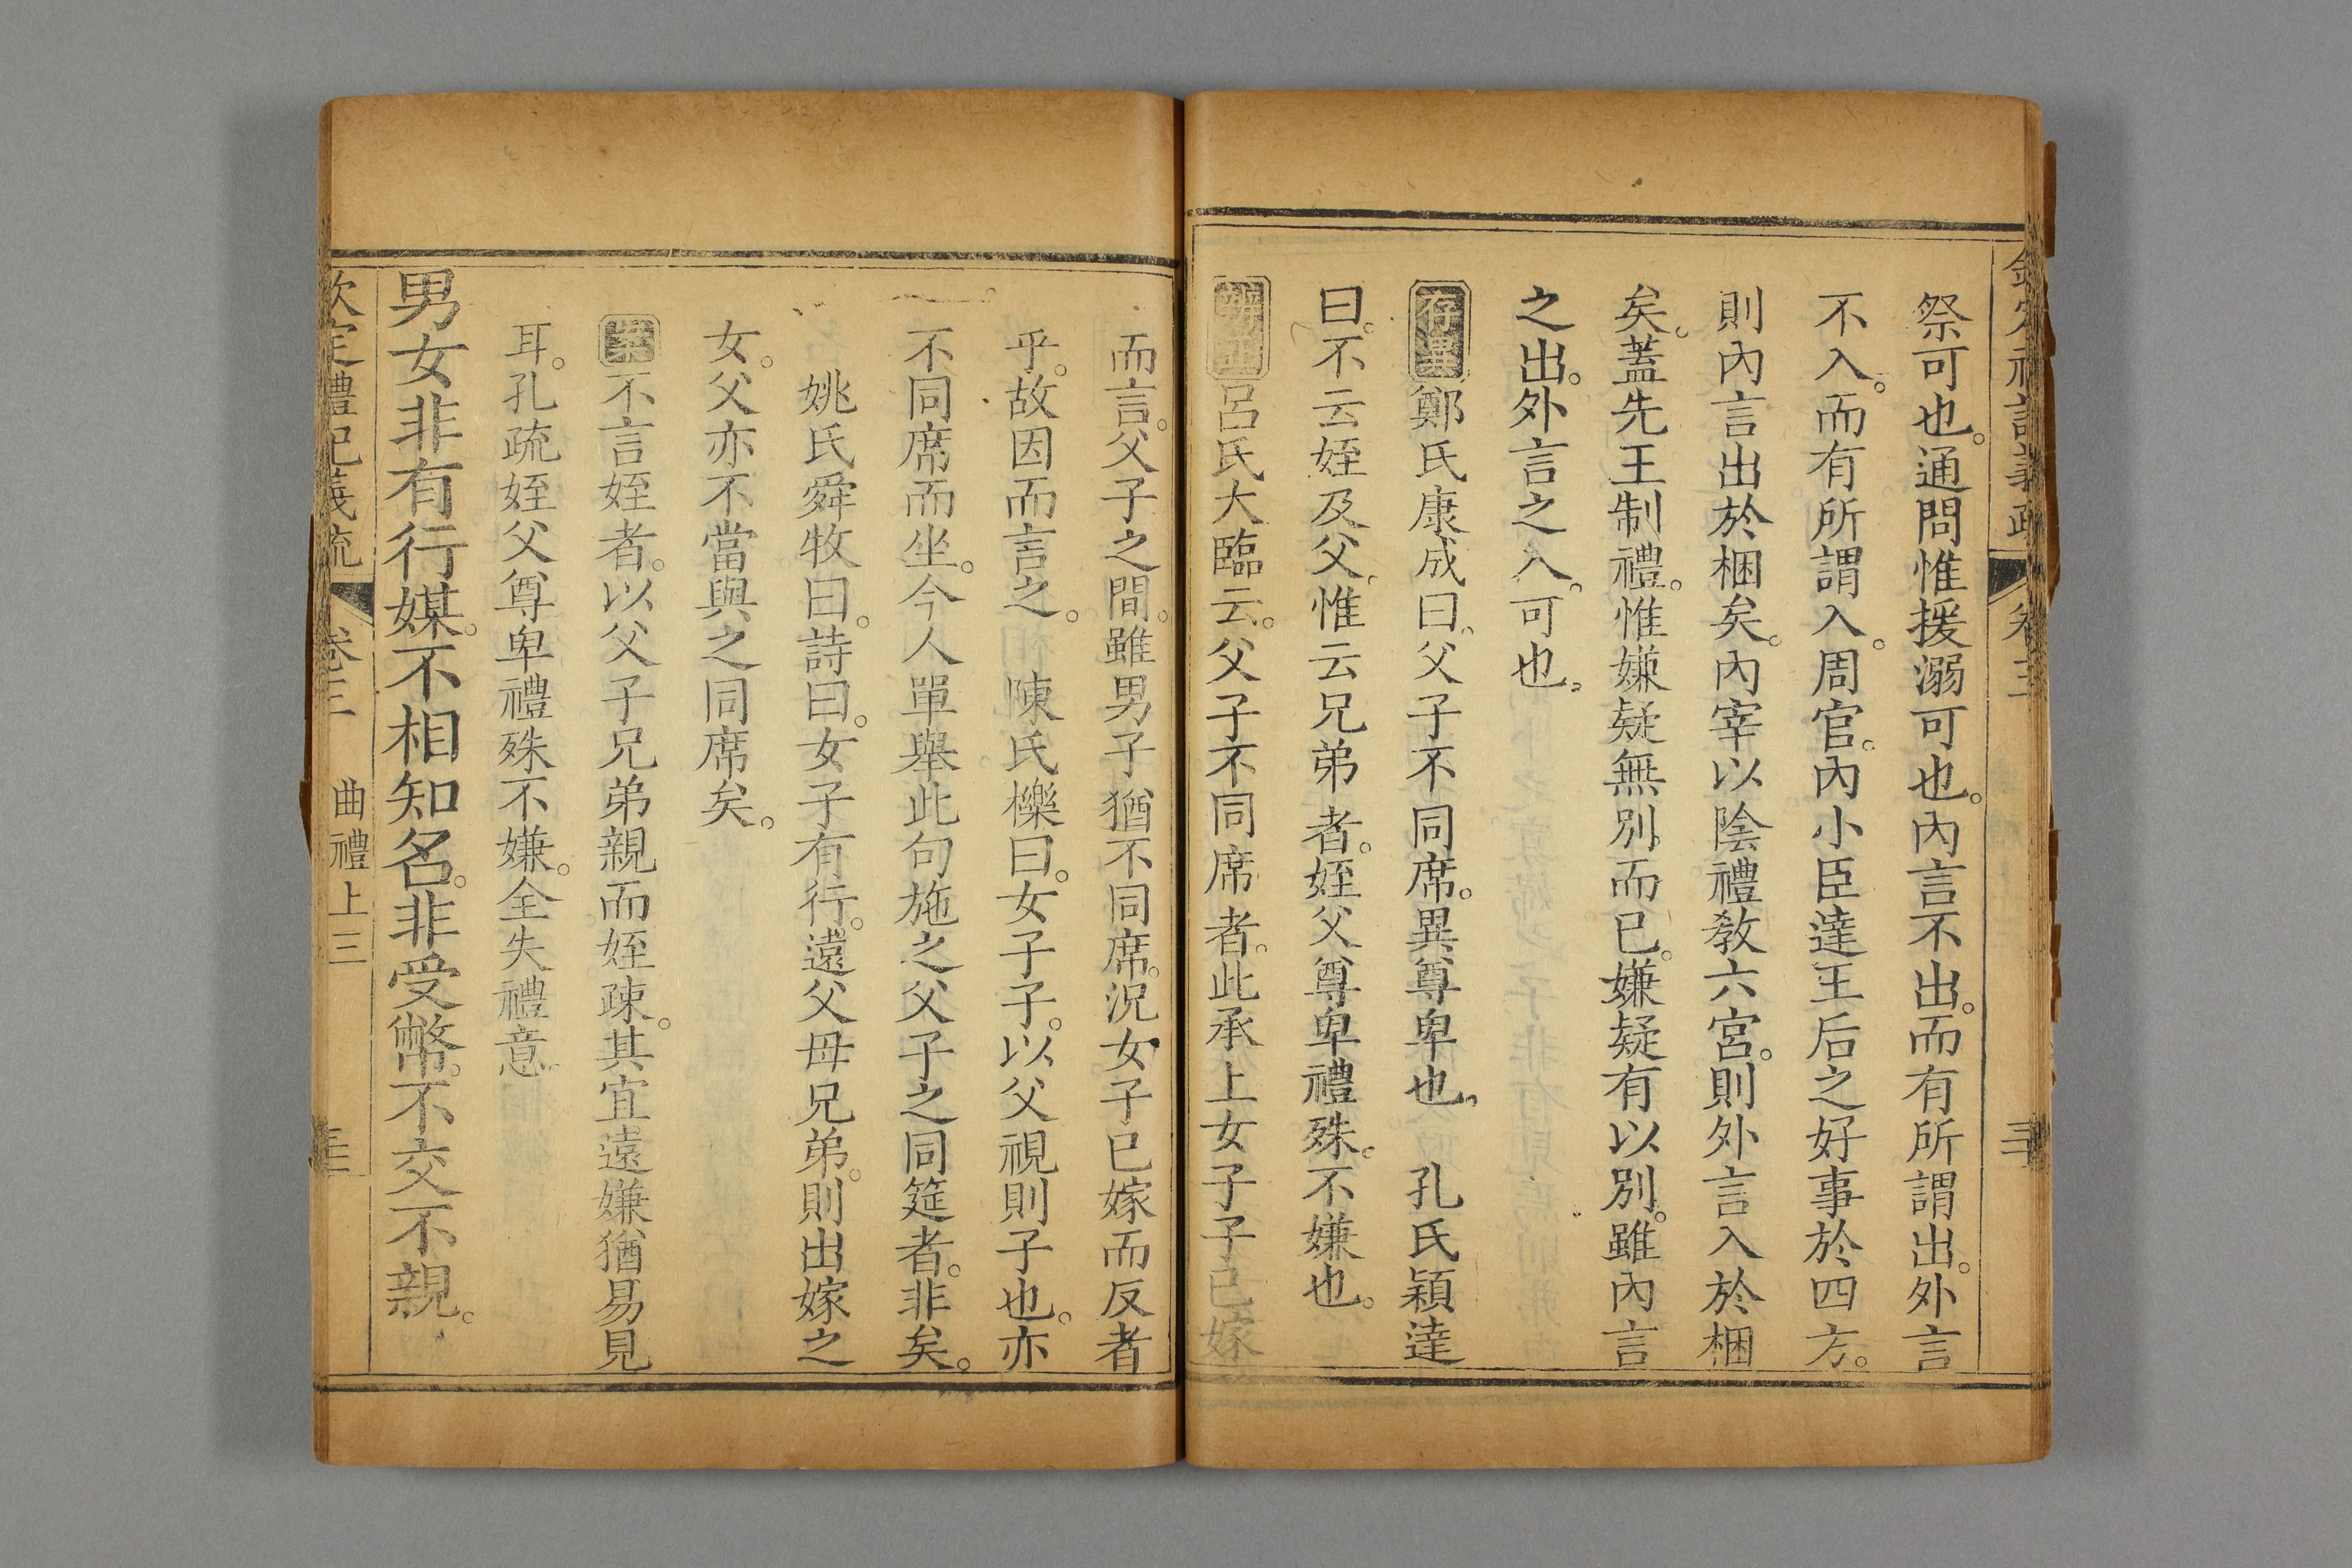 祭可也。通問惟援溺可也。內言不出。而有所謂出。外言
不入。而有所謂入。周官。內小臣達王后之好事於四方。
則內言出於梱矣。內宰以陰禮敎六宮。則外言入於梱
矣。蓋先王制禮。惟嫌疑無別而已。嫌疑有以別。雖內言
之出。外言之入。可也。
存異鄭氏康成曰。父子不同席。異尊卑也。　孔氏穎達
曰。不云姪及父。惟云兄弟者。姪父尊卑禮殊。不嫌也。
辨正呂氏大臨云。父子不同席者。此承上女子子已嫁
而言。父子之間。雖男子猶不同席。況女子已嫁而反者
乎。故因而言之。　陳氏櫟曰。女子子。以父視則子也。亦
不同席而坐。今人單舉此句施之父子之同筵者。非矣。
姚氏舜牧曰。詩曰。女子有行。遠父母兄弟。則出嫁之
女。父亦不當與之同席矣。
案不言姪者。以父子兄弟親而姪疎。其宜遠嫌猶易見
耳。孔疏姪父尊卑禮殊不嫌。全失禮意
男女非有行媒。不相知名。非受幣。不交不親。
欽定禮記義疏　卷三　曲禮上三